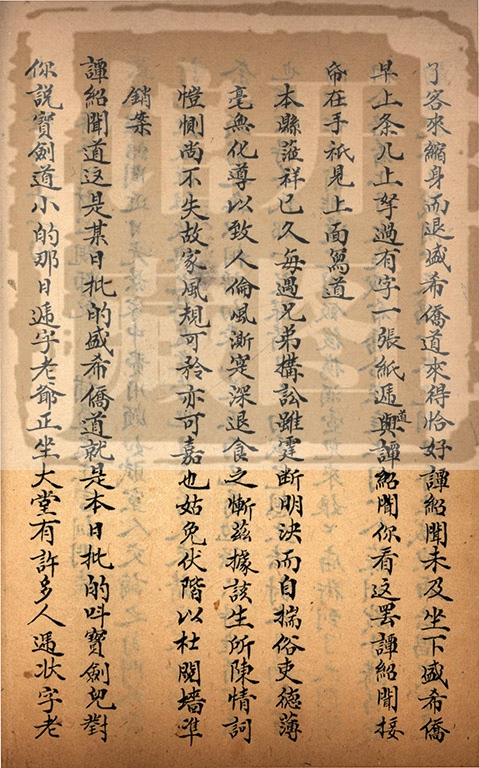 了客來縮身而退盛希僑道來得恰好譚紹聞未及坐下盛希僑
早上条几上拏過有字一張紙遞與道譚紹聞你看這罷譚紹聞接
帋在手祇見上面寫道
本縣蒞祥已久每遇兄弟搆訟雖霆断明決而自揣俗吏德薄
毫無化導以致人倫風澌寔深退食之慚兹據該生所陳情詞
愷惻尚不失故家風規可矜亦可嘉也姑免伏階以杜鬩墻准
銷案
譚紹聞道這是某日批的盛希僑道就是本日批的呌寶劍兒對
你説寶劍道小的那日遞字老爺正坐大堂有許多人遞状字老